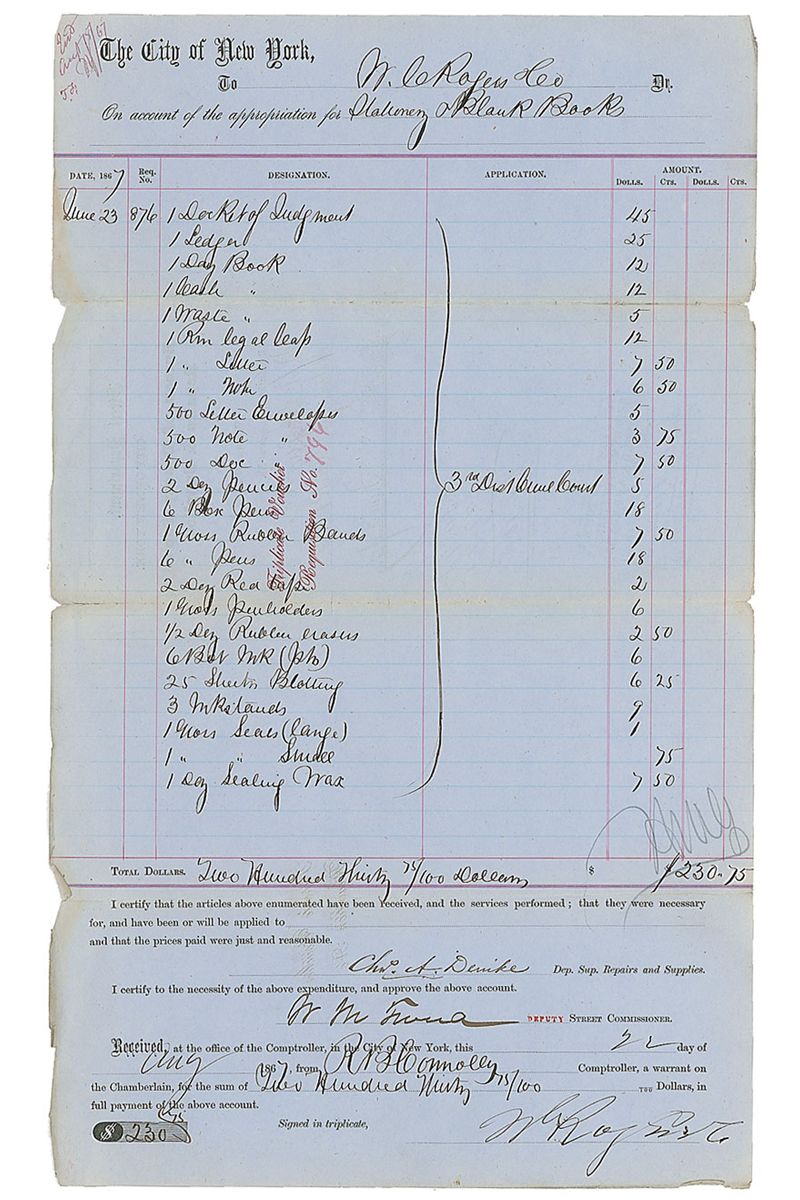 The City of New York,
To W. C. Rogers & Co Dr.
On account of the appropriation for Stationery & Blank Books
DATE, 1867 Req. No. DESIGNATION. APPLICATION. AMOUNT.
DOLLS. CTS. DOLLS. CTS.
June 23 876 1 Docket of Judgment 45
1 Ledger 25
1 Day Book 12
1 Cash " 12
1 Waste " 5
1 Rm legal Cap 12
1 " Letter 7 50
1 " Note 6 50
500 Letter Envelopes 5
500 Note " 3 75
500 Doc " 7 50
2 Doz Pencils 3rd Dist Civil Court 5
6 Box Pens 18
1 Gross Rubber Bands 7 50
6 " Pens 18
2 Doz Red Tape 2
1 Gross Penholders 6
1/2 Doz Rubber erasers 2 50
6 Bot Ink (pts) 6
25 Sheets Blotting 6 25
3 Inkstands 9
1 Gross Seals (large) 1
1 " " Small 75
1 Doz Sealing Wax 7 50
Triplicate Voucher
Requisition No. 794
TOTAL DOLLARS. Two Hundred Thirty 75/100 Dollars $ $230.75
I certify that the articles above enumerated have been received, and the services performed; that they were necessary
for, and have been or will be applied to
and that the prices paid were just and reasonable.
Chas. A. Denike Dep. Sup. Repairs and Supplies.
I certify to the necessity of the above expenditure, and approve the above account.
W M DEPUTY STREET COMMISSIONER.
Received, at the office of the Comptroller, in the City of New York, this 22 day of
Aug 1867, from R B Connolly Comptroller, a warrant on
the Chamberlain, for the sum of Two Hundred Thirty 75/100 100 Dollars, in
full payment of the above account.
$ 230 75 Signed in triplicate, W C Rogers & Co